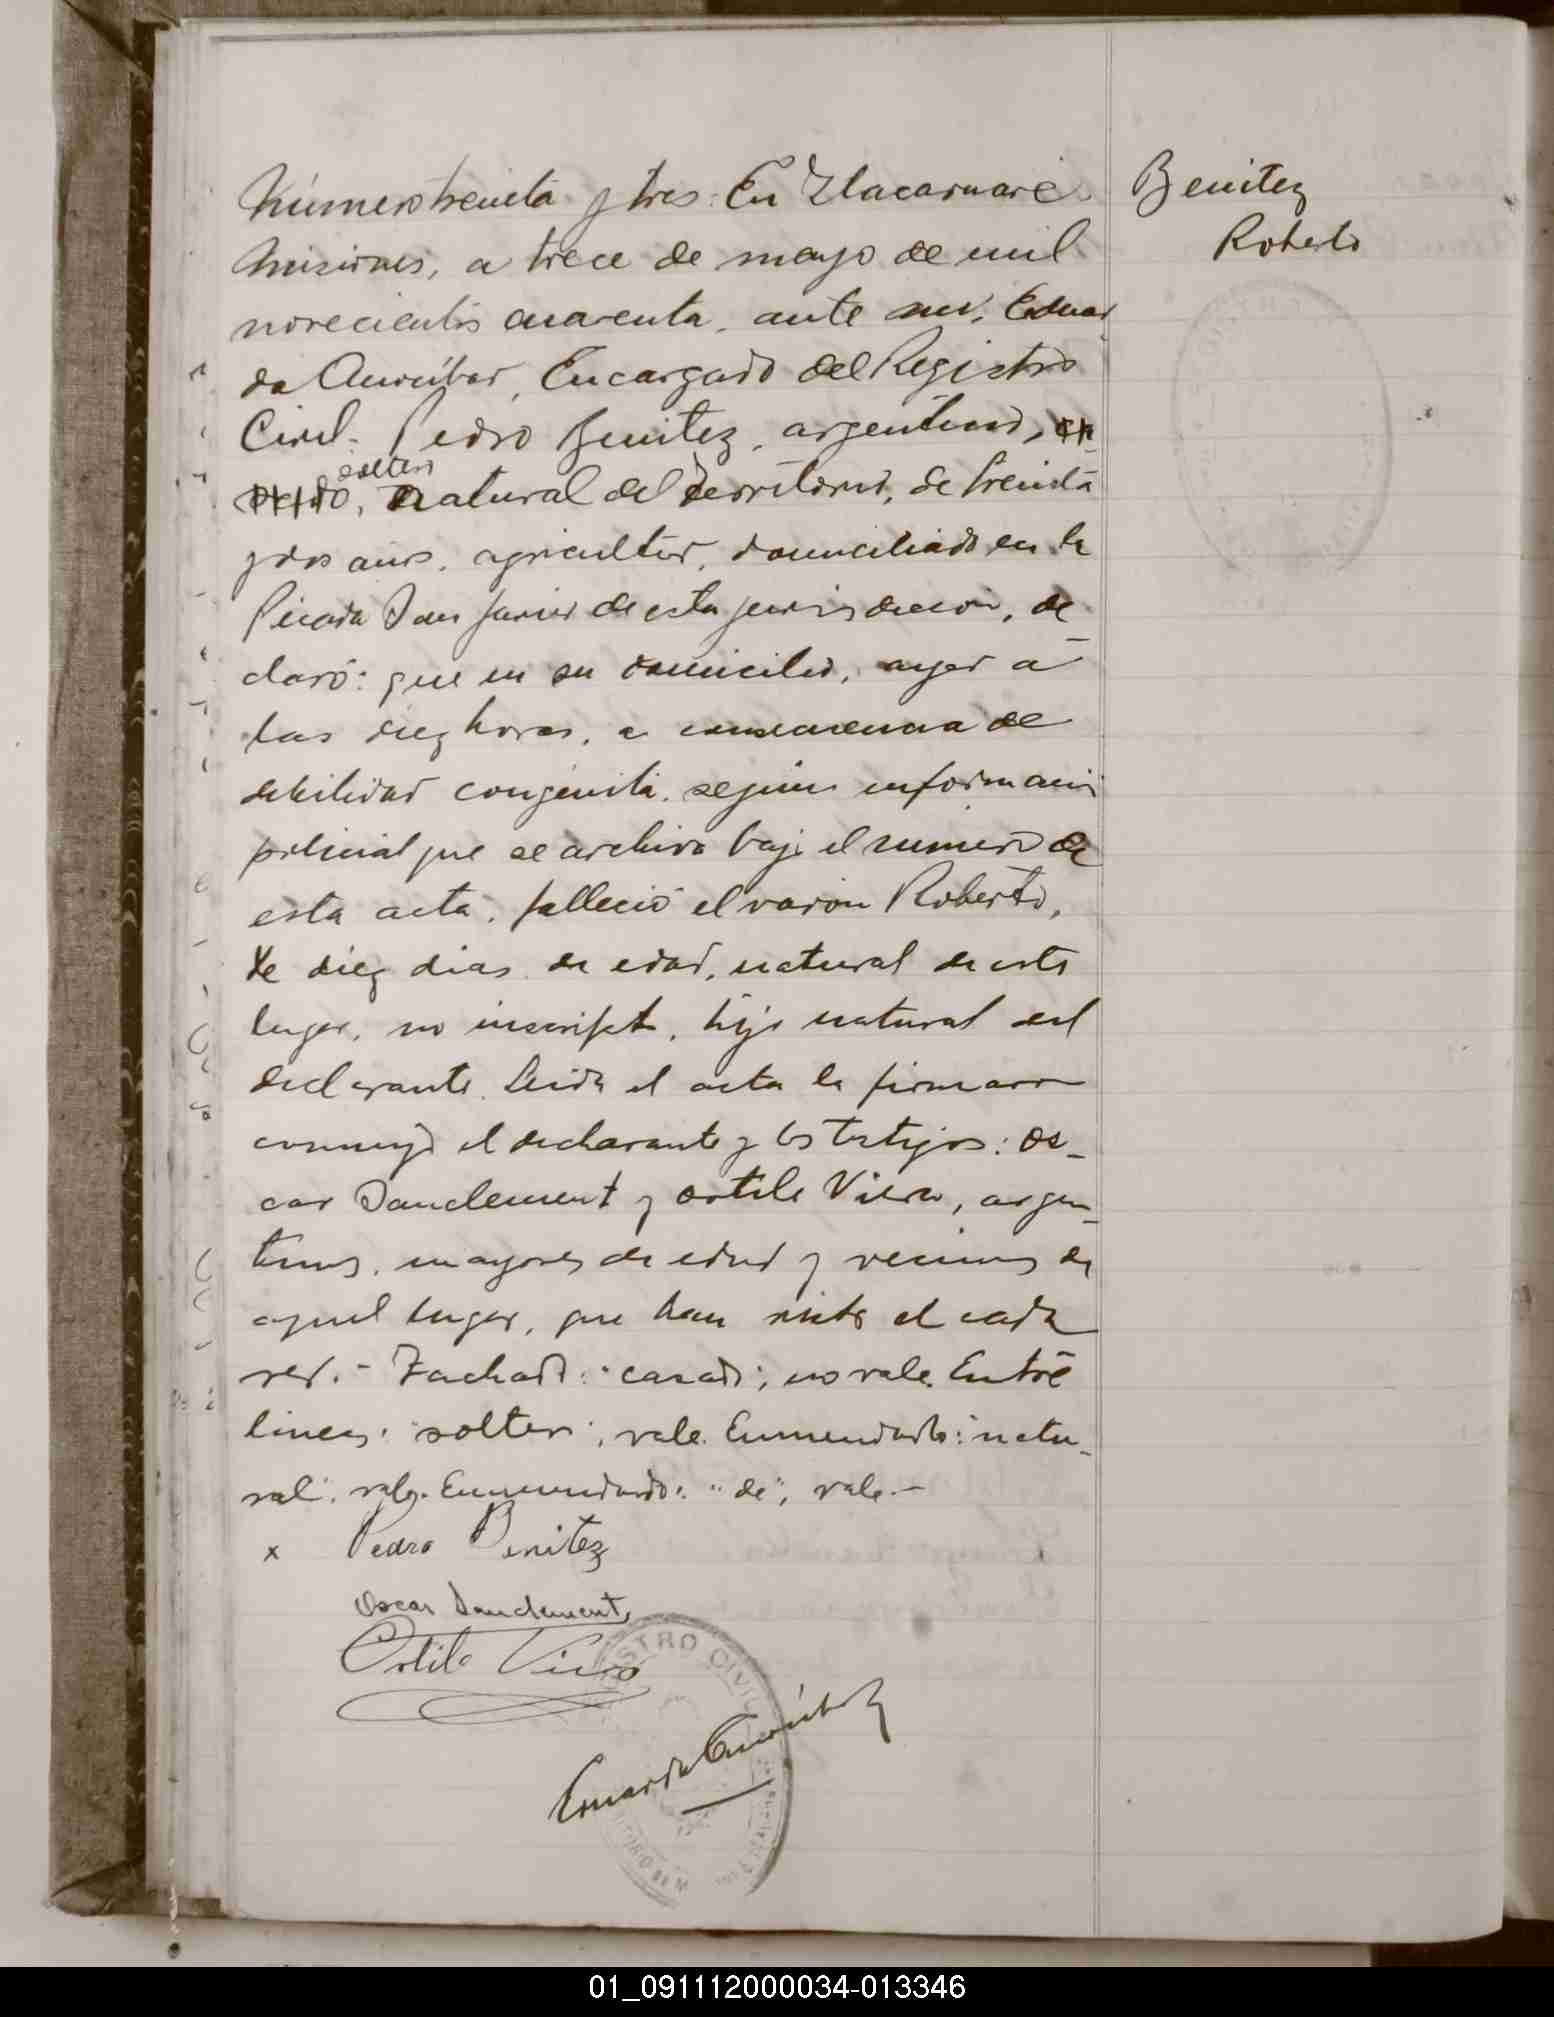 Número treinta y tres: En Itacaruaré.
Misiones, a trece de mayo de mil
novecientos cuarenta, ante mí, Eduar
do Encargado del Registro
Civil. Pedro Benitez, argentino, ca-
sado, soltero natural del territorio, de treinta
y dos años, agricultor, domiciliado en la
Picada San Javier de esta jurisdiccion, de-
claró: que en su domicilio, ayer a
las diez horas, a consecuencia de
debilidad congénita, según informacion
policial que se archiva bajo el numero de
esta acta, falleció el varon Roberto,
de diez dias de edad, natural de este
lugar, no inscripto, hijo natural del
declarante. Leida el acta la firmaron
conmigo el declarante y los testigos: Os-
car Sandement y Ortilo Viera, argen-
tinos, mayores de edad y vecinos de
aquel lugar, que han visto el cada
ver.- Tachado: "casado", no vale. Entre
lineas: "soltero", vale. Enmendado: "natu-
ral", vale. Enmendado: "de", vale.-
x Pedro Benitez
Oscar Sandement
Ortilo Viera
REGISTRO CIVIL
Benitez
Roberto
01_091112000034-013346